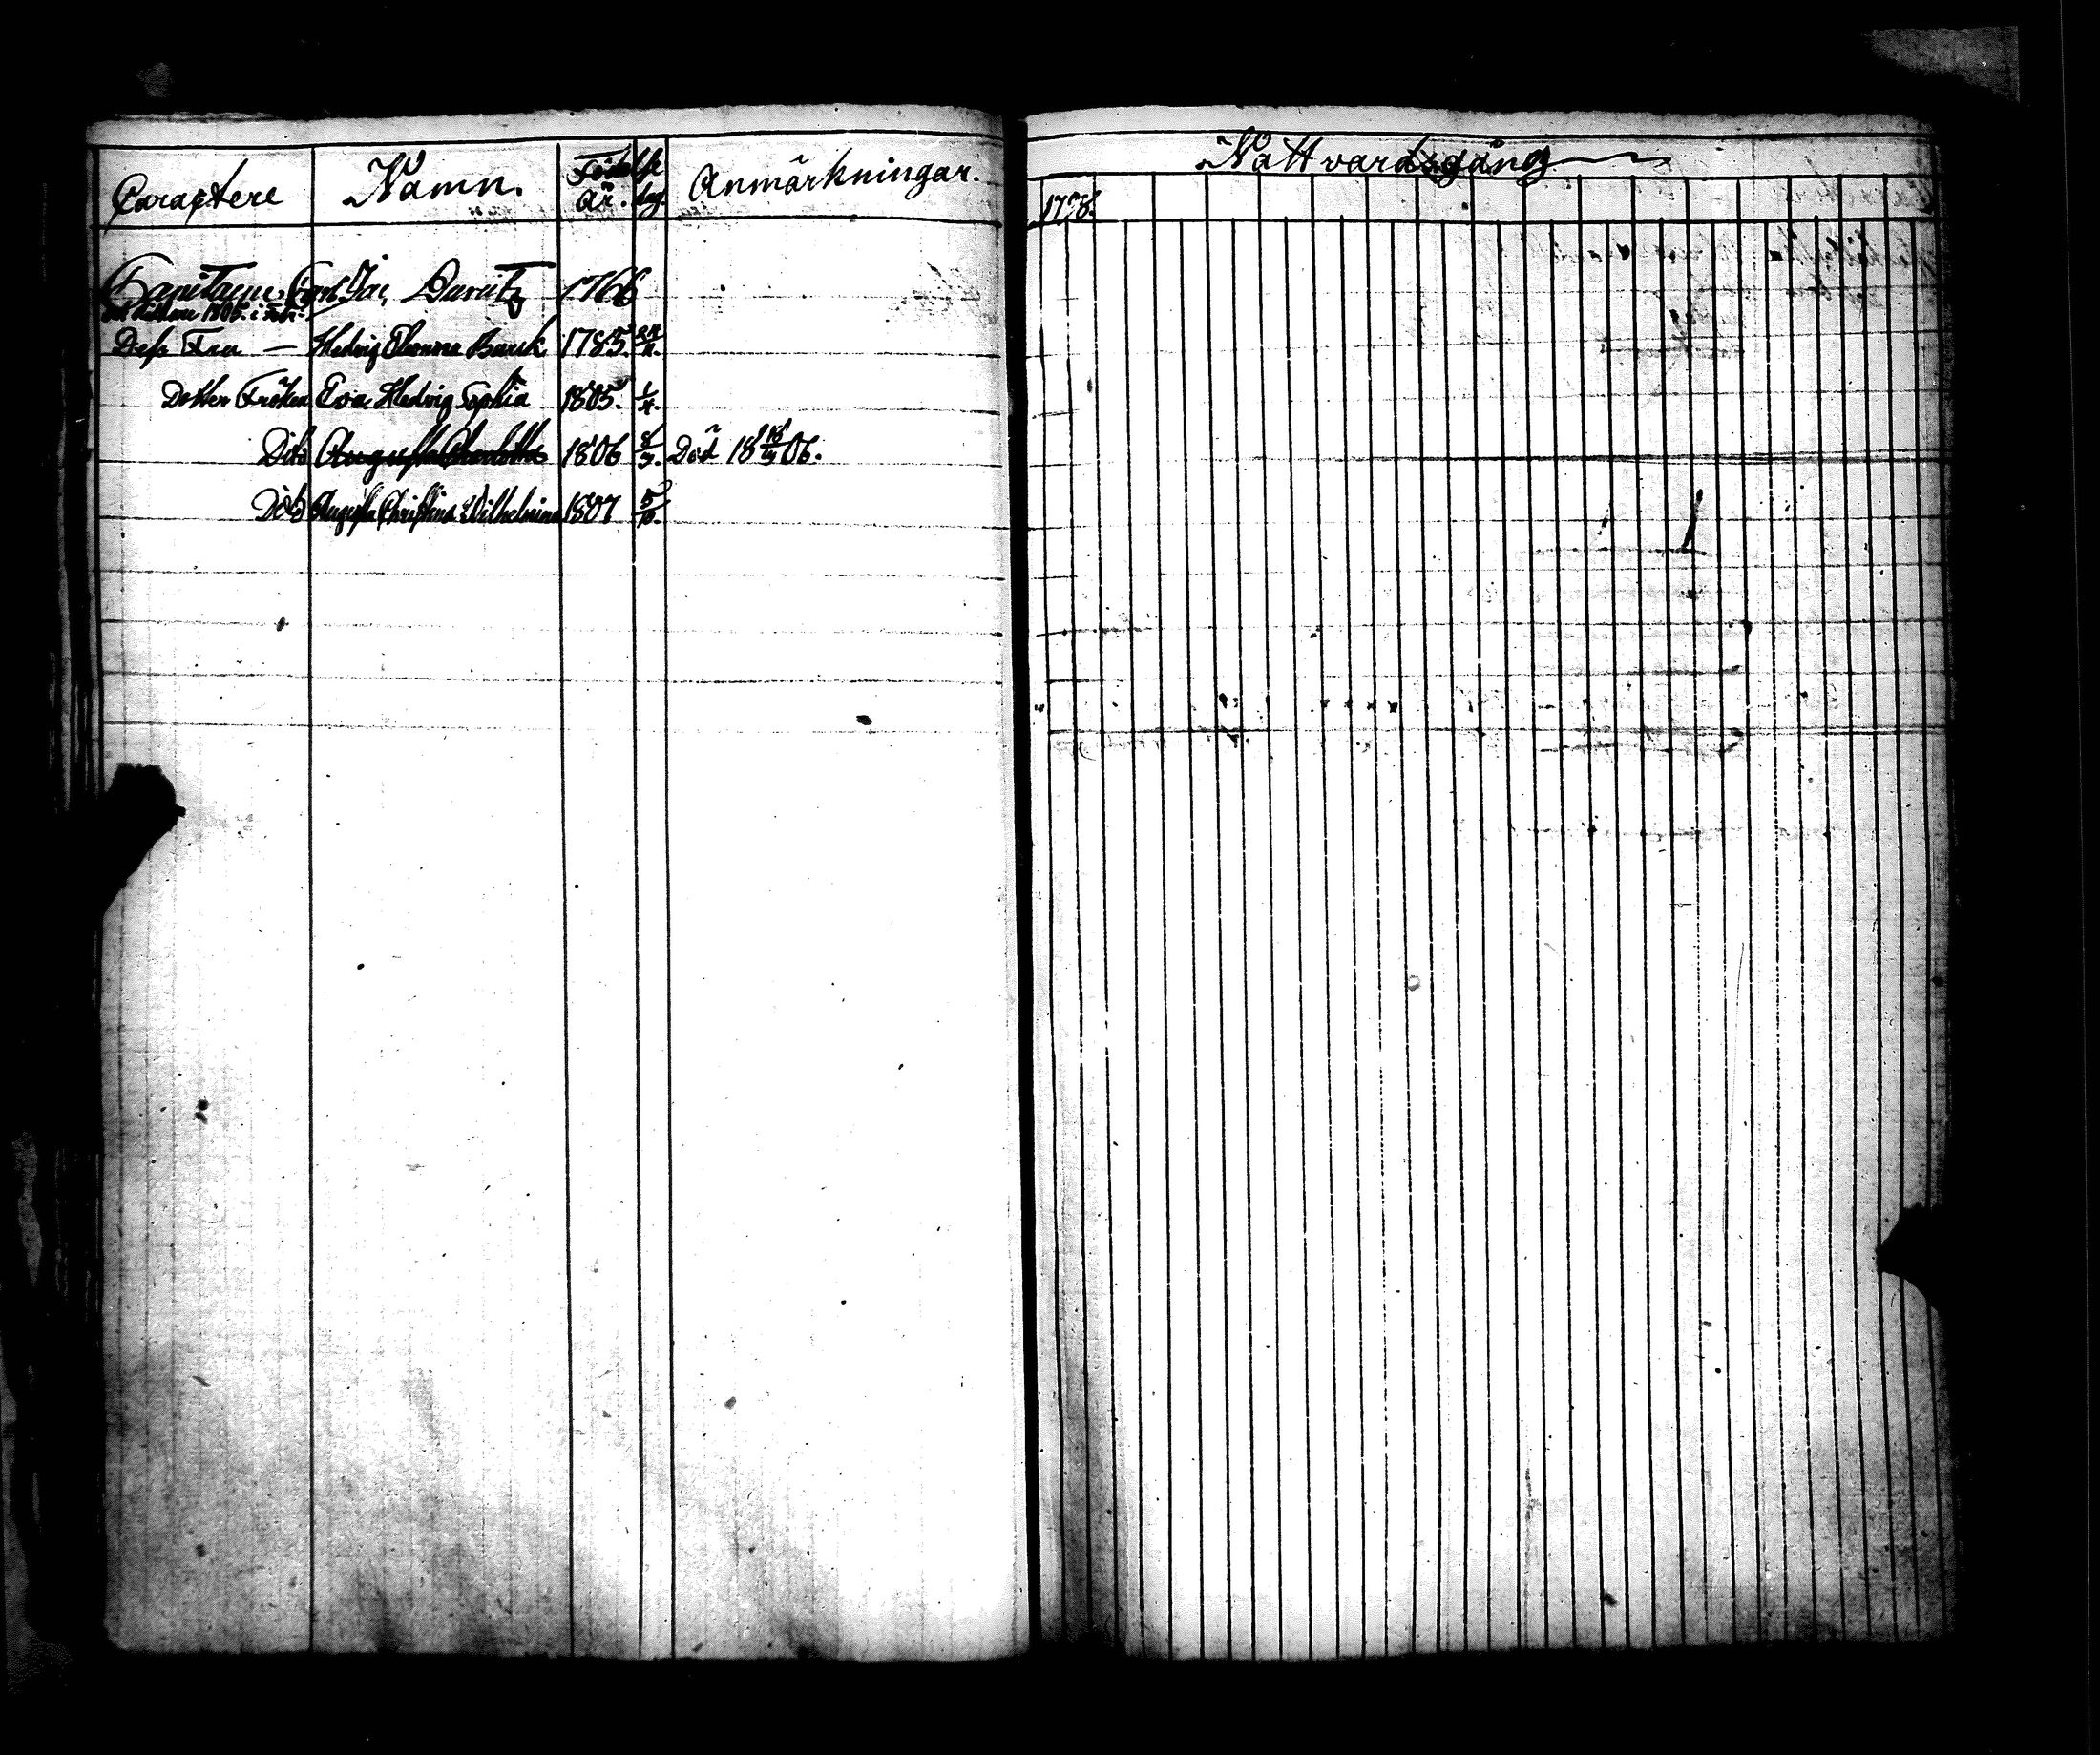 Caractere Namn. Födelse År. dag. Anmärkningar.
Capitaine Carl Jac. Duritz 1766
1805. i
Dess Fru — Hedvig Eleonora Barck 1785. 24/11.
Dotter Fröken Eva Hedvig Sophia 1805. 1/4.
Dito Augusta Charlotta 1806 8/3. Död 18 18/4 06.
Dito Augusta Christina Wilhelmina 1807 5/10.
Nattvardsgång
1798.